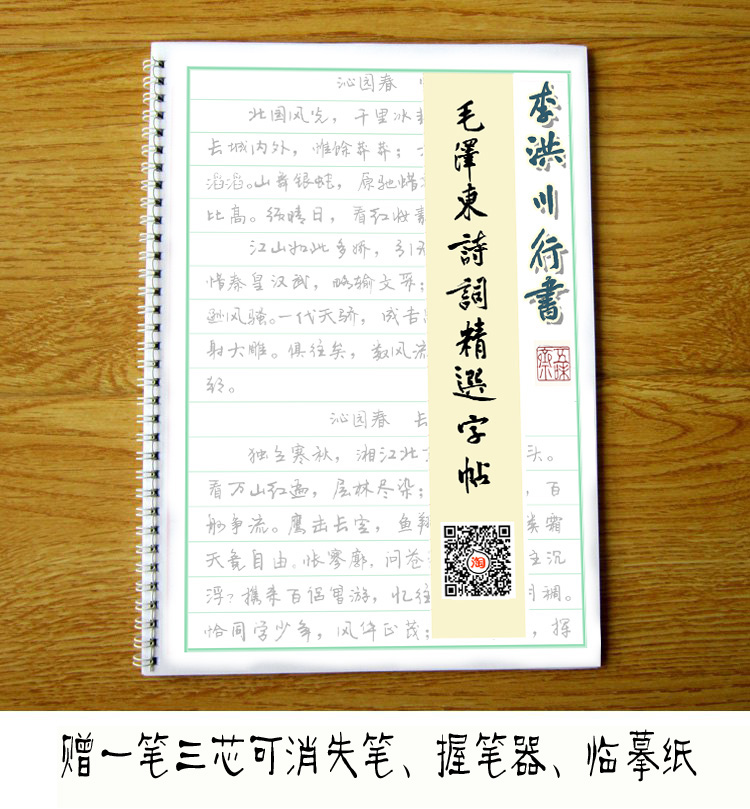 李洪川行書
毛澤東詩詞精選字帖
沁园春
北国风光，千里冰
长城内外，惟馀莽莽；
滔滔。山舞银蛇，原驰蜡
比高。须晴日，看红妆素
江山如此多娇，引无
惜秦皇汉武，略输文采；
逊风骚。一代天骄，成吉
射大雕。俱往矣，数风流
朝。
沁园春 长
独立寒秋，湘江北 头。
看万山红遍，层林尽染； ，百
舸争流。鹰击长空，鱼翔 类霜
天竞自由。怅寥廓，问苍 主沉
浮？携来百侣曾游，忆往 月稠。
恰同学少年，风华正茂； ，挥
淘
赠一笔三芯可消失笔、握笔器、临摹纸